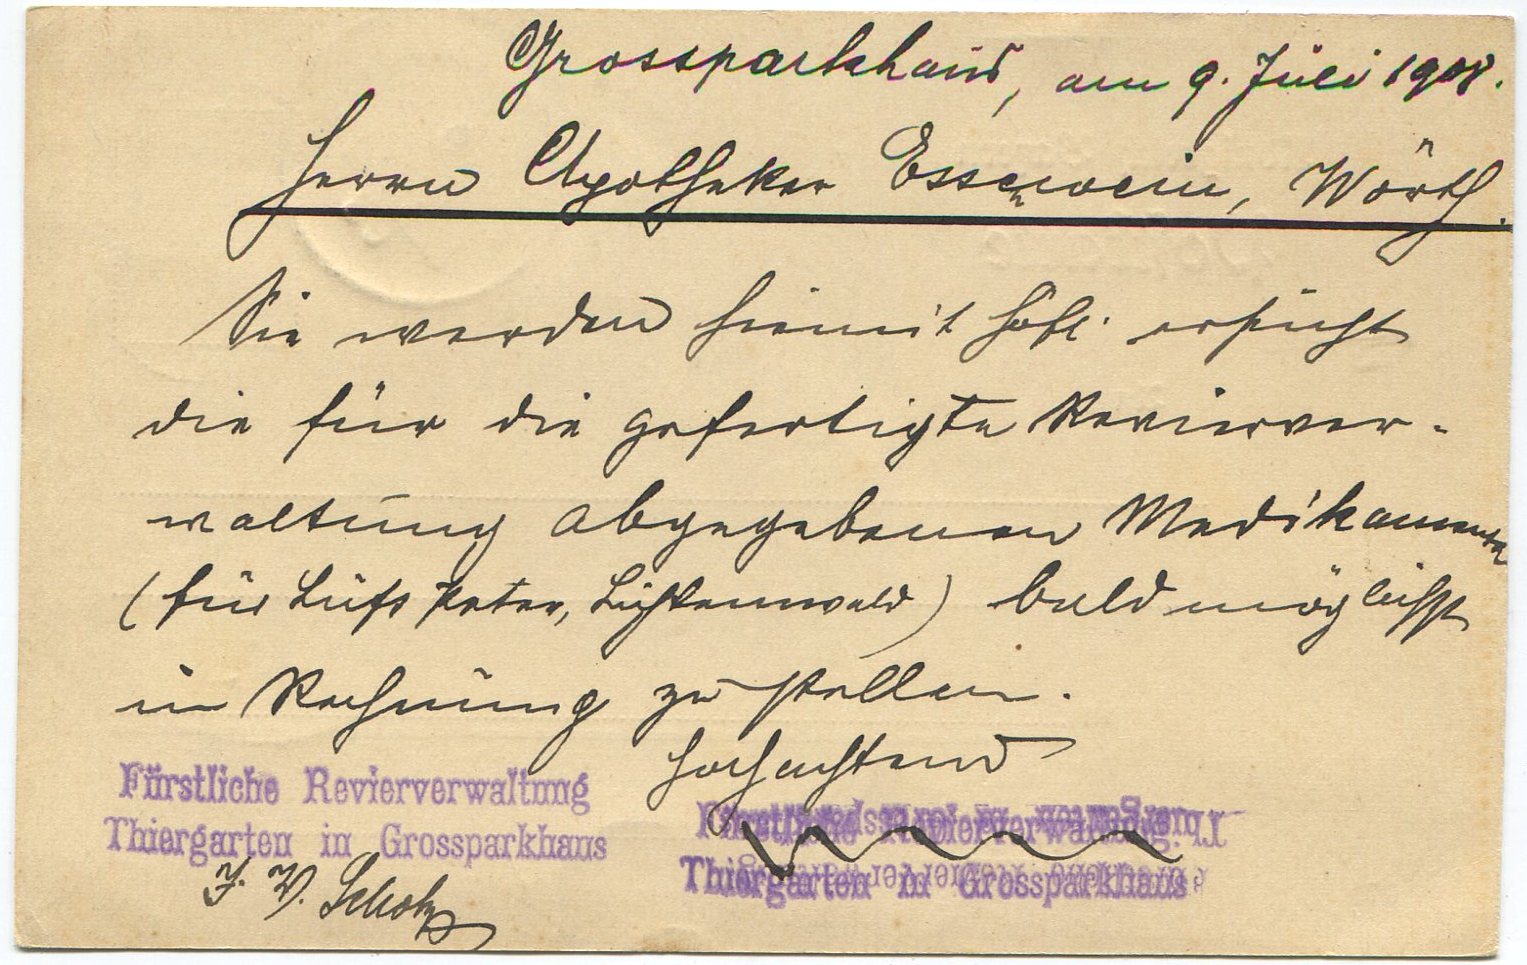 Grossparkhaus, am 9. Juli 1908.
Herrn Apotheker Essenwein, Wörth.
Sie werden hiemit höfl. ersucht
die für die gefertigte Revierver-
waltung abgegebenen Medikamente
(für Peter, Lichtenwald) baldmöglichst
in Rechnung zu stellen.
Hochachtend
Fürstliche Revierverwaltung
Thiergarten in Grossparkhaus
Fürstliche Revierverwaltung
Thiergarten in Grossparkhaus
J. V. Scholz